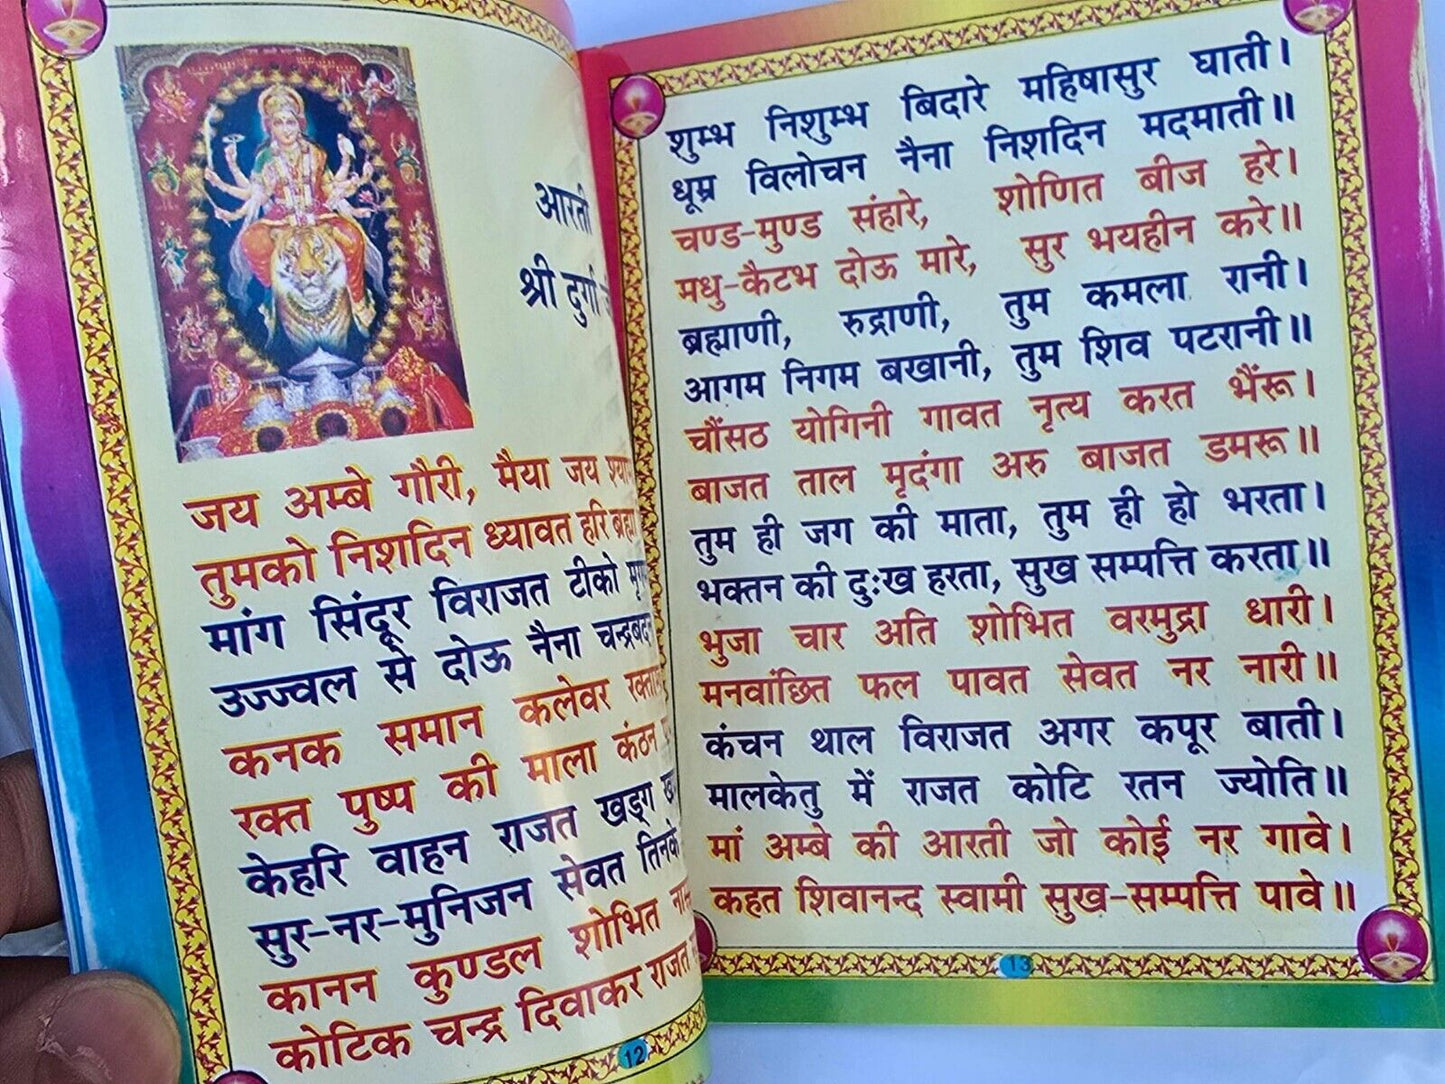 आरती
श्री दुर्गा
जय अम्बे गौरी, मैया जय
तुमको निशदिन ध्यावत हरि ब्रह्मा
मांग सिंदूर विराजत टीको
उज्ज्वल से दोऊ नैना चन्द्रबदन
कनक समान कलेवर
रक्त पुष्प की माला कंठन
केहरि वाहन राजत खड्ग
सुर-नर-मुनिजन सेवत तिनके
कानन कुण्डल शोभित
कोटिक चन्द्र दिवाकर राजत
12
शुम्भ निशुम्भ बिदारे महिषासुर घाती।
धूम्र विलोचन नैना निशदिन मदमाती॥
चण्ड-मुण्ड संहारे, शोणित बीज हरे।
मधु-कैटभ दोऊ मारे, सुर भयहीन करे॥
ब्रह्माणी, रुद्राणी, तुम कमला रानी।
आगम निगम बखानी, तुम शिव पटरानी॥
चौंसठ योगिनी गावत नृत्य करत भैंरू।
बाजत ताल मृदंगा अरु बाजत डमरू॥
तुम ही जग की माता, तुम ही हो भरता।
भक्तन की दुःख हरता, सुख सम्पत्ति करता॥
भुजा चार अति शोभित वरमुद्रा धारी।
मनवांछित फल पावत सेवत नर नारी॥
कंचन थाल विराजत अगर कपूर बाती।
मालकेतु में राजत कोटि रतन ज्योति॥
मां अम्बे की आरती जो कोई नर गावे।
कहत शिवानन्द स्वामी सुख-सम्पत्ति पावे॥
13